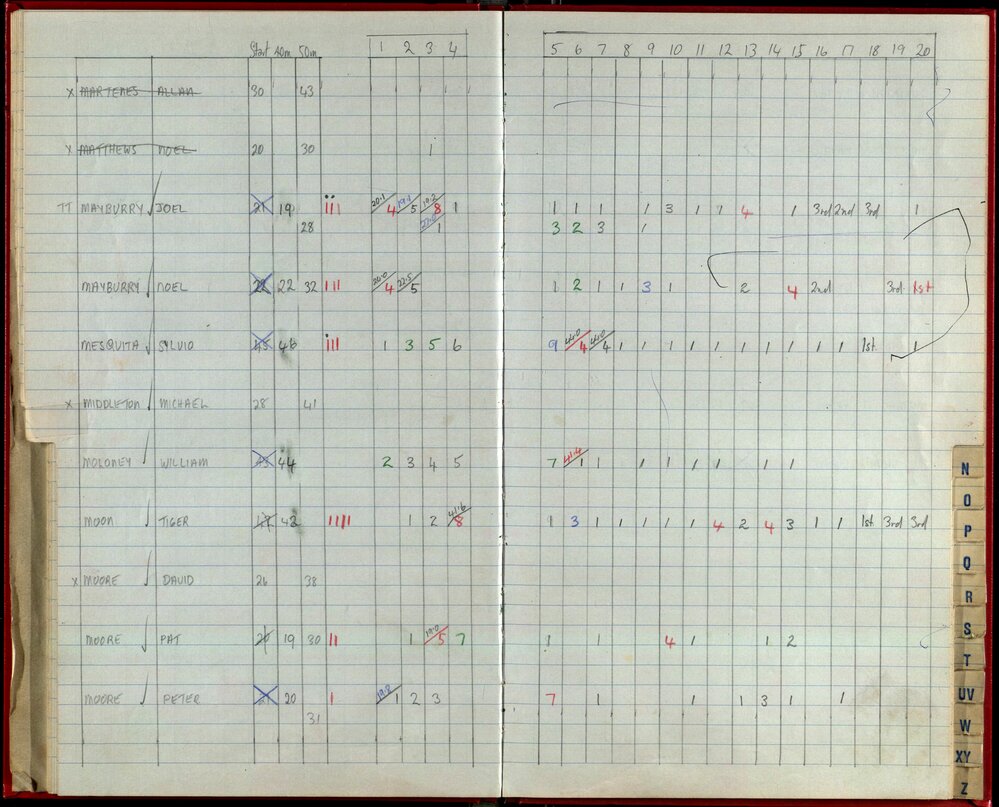 Start 40m 50m 1 2 3 4 5 6 7 8 9 10 11 12 13 14 15 16 17 18 19 20
x MARTENES ALLAN 30 43
x MATTHEWS NOEL 20 30 1
TT MAYBURRY JOEL 21 19 III 20.1 4 19.1 5 19.2 8 1 1 1 1 1 3 1 1 4 1 3rd 2nd 3rd 1
28 1 3 2 3 1
MAYBURRY NOEL 22 22 32 III 20.0 4 22.5 5 1 2 1 1 3 1 2 4 2nd 3rd 1st
MESQUITA SILVIO 45 46 III 1 3 5 6 9 44.0 4 44.0 4 1 1 1 1 1 1 1 1 1 1 1st 1
x MIDDLETON MICHAEL 28 41
MOLONEY WILLIAM 45 44 2 3 4 5 7 41.4 1 1 1 1 1 1 1 1
MOON TIGER 17 42 IIIII 1 2 41.6 8 1 3 1 1 1 1 1 4 2 4 3 1 1 1st 3rd 3rd
x MOORE DAVID 26 38
MOORE PAT 26 19 30 II 1 19.0 5 7 1 1 4 1 1 2
MOORE PETER 20 I 19.8 1 2 3 7 1 1 1 3 1 1
31
N
O
P
Q
R
S
T
UV
W
XY
Z